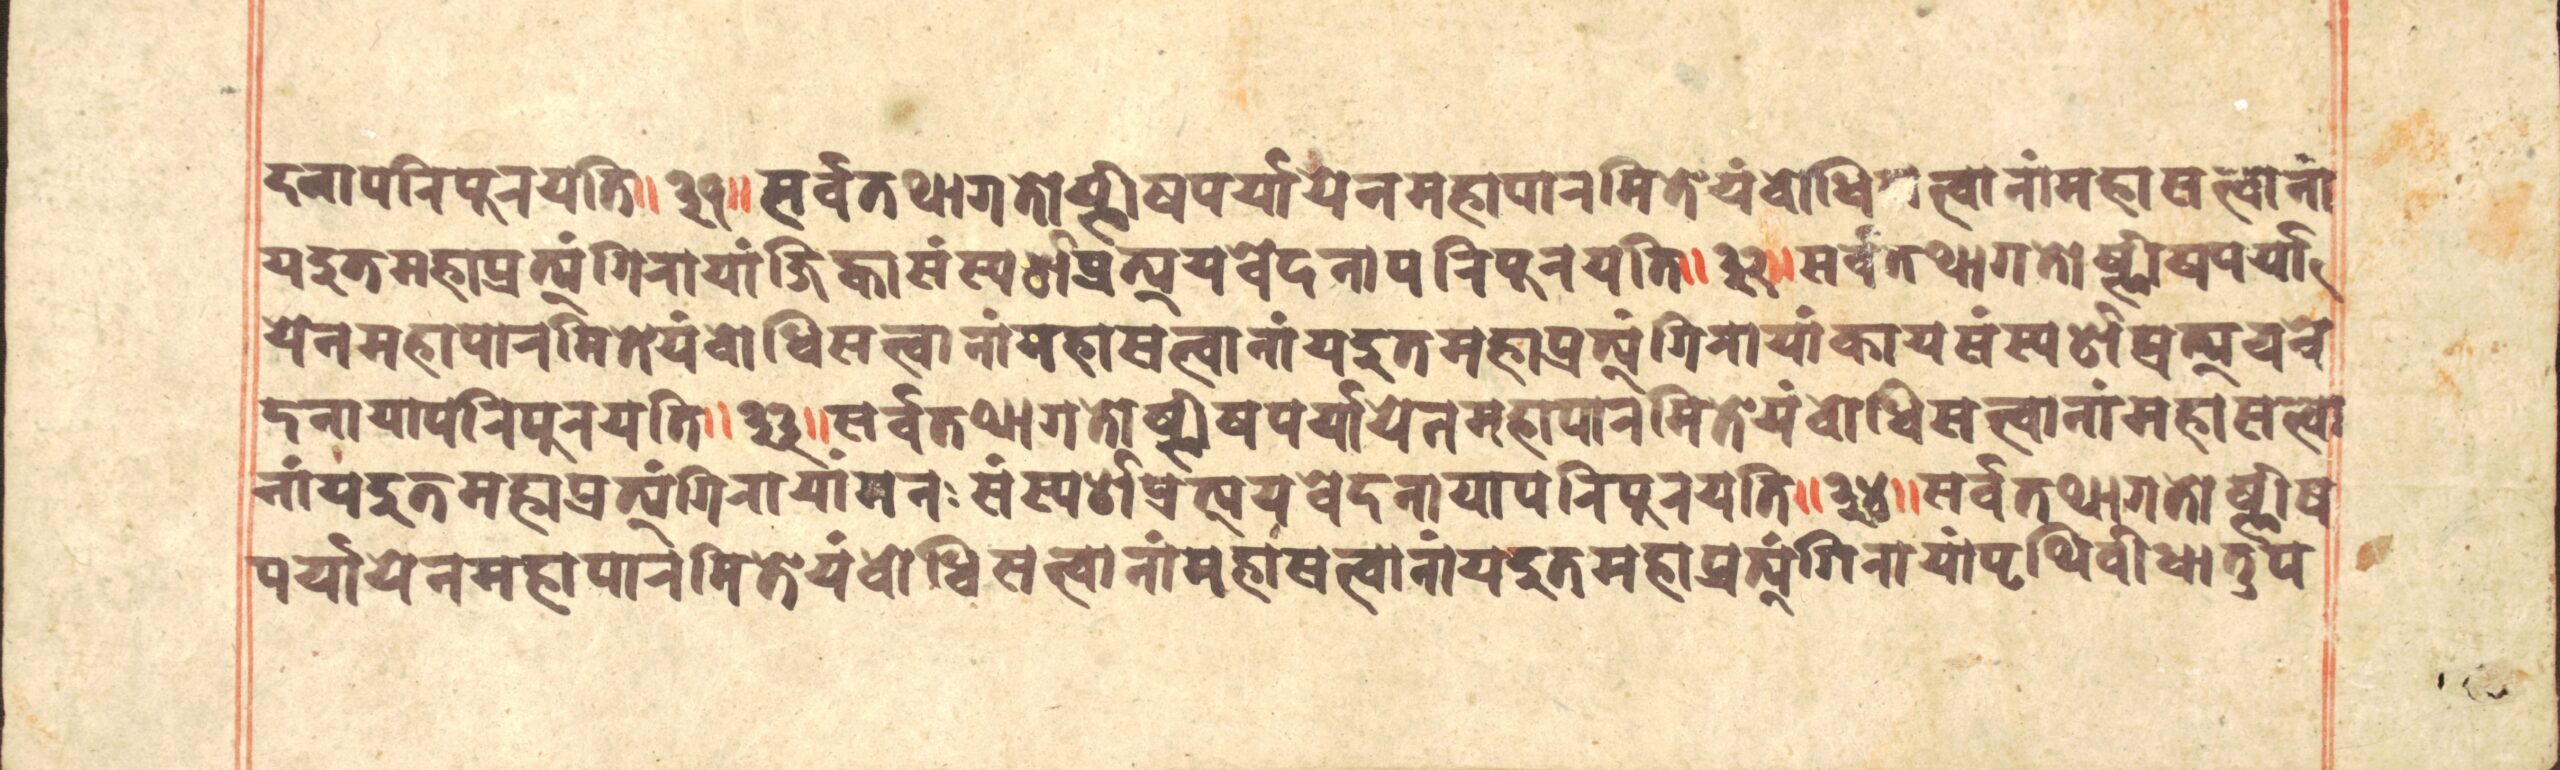 दनापरिपूरयति॥३१॥सर्वतथागतोष्णीषपर्यायेनमहापारमितेयंबोधिसत्वानांमहासत्वानां
यदुतमहाप्रत्यंगिरायांजिह्वासंस्पर्शप्रत्ययवेदनापरिपूरयति॥३२॥सर्वतथागतोष्णीषपर्या
येनमहापारमितेयंबोधिसत्वानांमहासत्वानांयदुतमहाप्रत्यंगिरायांकायसंस्पर्शप्रत्ययवे
दनायापरिपूरयति॥३३॥सर्वतथागतोष्णीषपर्यायेनमहापारमितेयंबोधिसत्वानांमहासत्वा
नांयदुतमहाप्रत्यंगिरायांमनःसंस्पर्शप्रत्ययवेदनायापरिपूरयति॥३४॥सर्वतथागतोष्णीष
पर्यायेनमहापारमितेयंबोधिसत्वानांमहासत्वानांयदुतमहाप्रत्यंगिरायांपृथिवीधातुप